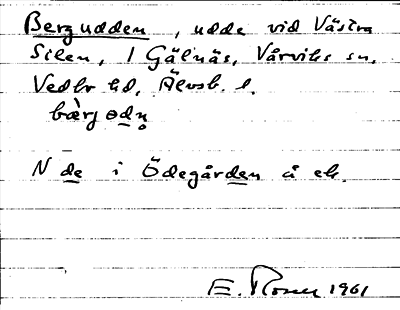 Bergudden, udde vid Västra
Silen, 1 Gälnäs, Vårviks sn,
Vedbo hd, Älvsb. l.
bærj odn̥
N de i Ödegården å ek.
E. Rosen 1961